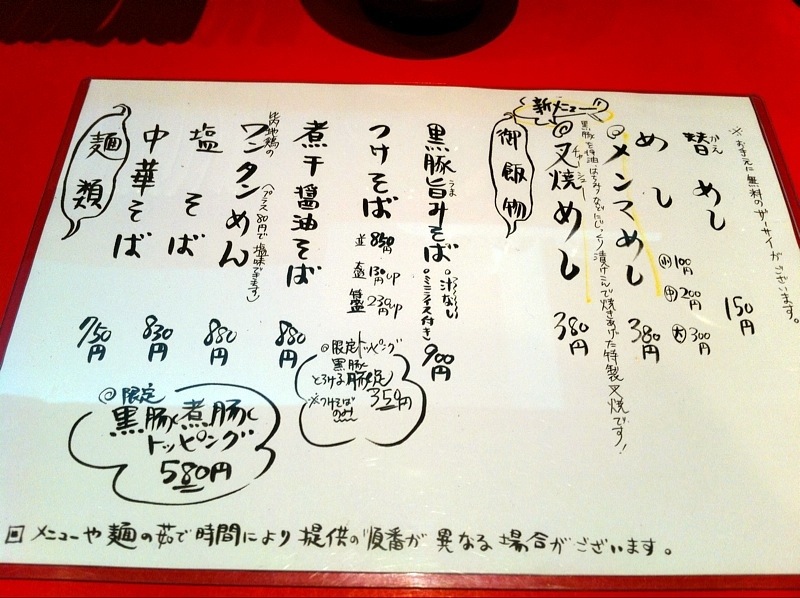 ※おまえに無料のザーサイがございます。
替めし
かえ
150円
めし
小 100円
中 200円
大 300円
メンマめし
380円
新メニュー!!
黒豚を醤油、はちみつなどにじっくり漬けこんで焼きあげた特製叉焼です!
叉焼めし
チャーシュー
380円
御飯物
黒豚旨みそば。汁なし
うま
。ミニライス付き
900円
つけそば
並 850円
大盛 130円up
特盛 230円up
◎限定トッピング
黒豚
とろける豚足
350円
※つけそばのみ
煮干醤油そば
880円
比内地鶏の
ワンタンめん
(プラス80円で塩味できます)
880円
塩そば
830円
中華そば
750円
麺類
◎限定
黒豚煮豚
トッピング
580円
メニューや麺の茹で時間により提供の順番が異なる場合がございます。